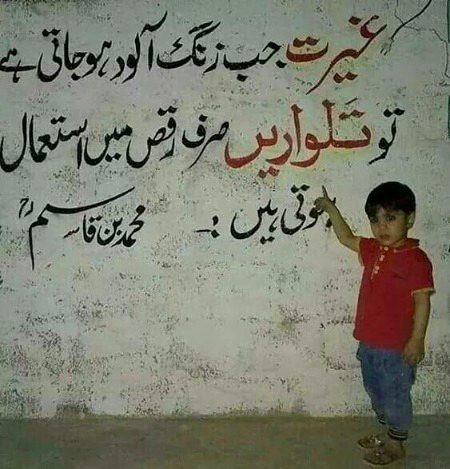 غیرت جب زنگ آلود ہو جاتی ہے
تو تلواریں صرف رقص میں استعمال
ہوتی ہیں :۔
محمد بن قاسمؒ